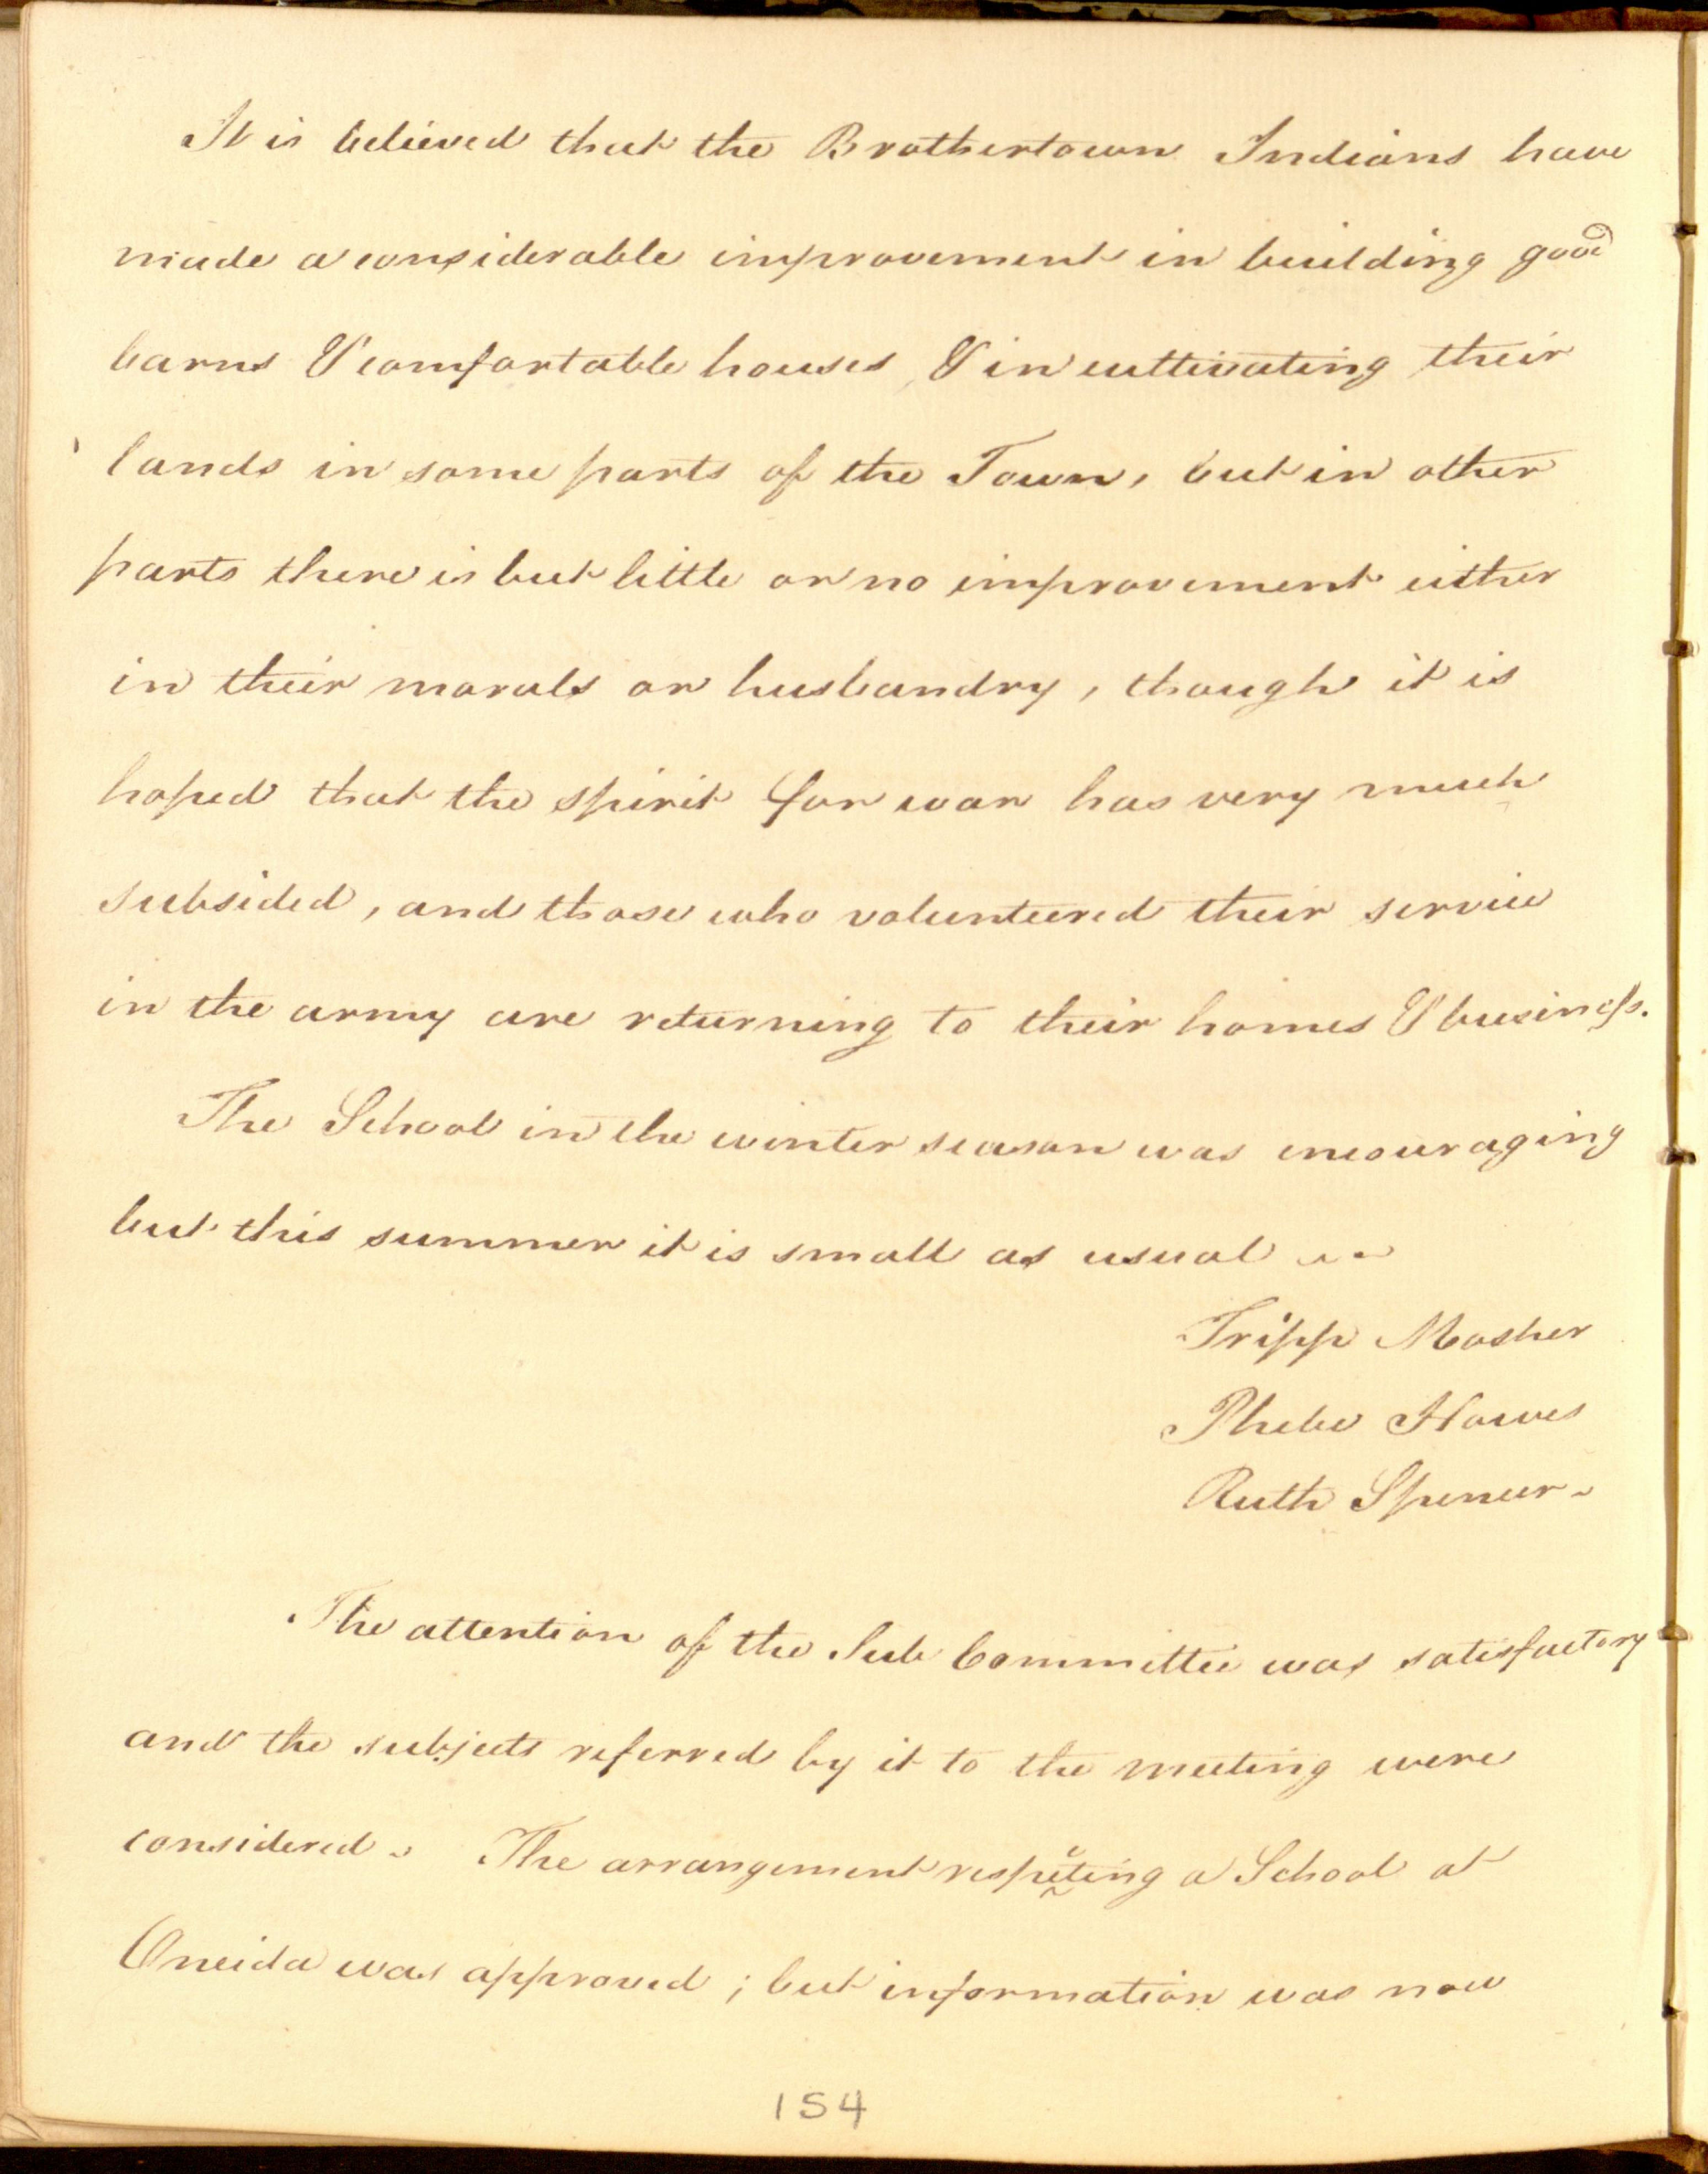 It is believed that the Brothertown Indians have
made a considerable improvement in building good
barns & comfortable houses, & in cultivating their
lands in some parts of the Town, but in other
parts there is but little or no improvement either
in their morals or husbandry, though it is
hoped that the spirit for war has very much
subsided, and those who volunteered their service
in the army are returning to their homes & business.
The School in the winter season was encouraging
but this summer it is small as usual
Tripp Mosher
Phebe Howes
Ruth Spencer
The attention of the Sub Committee was satisfactory
and the subjects referred by it to the meeting were
considered. The arrangement respecting a School at
Oneida was approved; but information was now
154